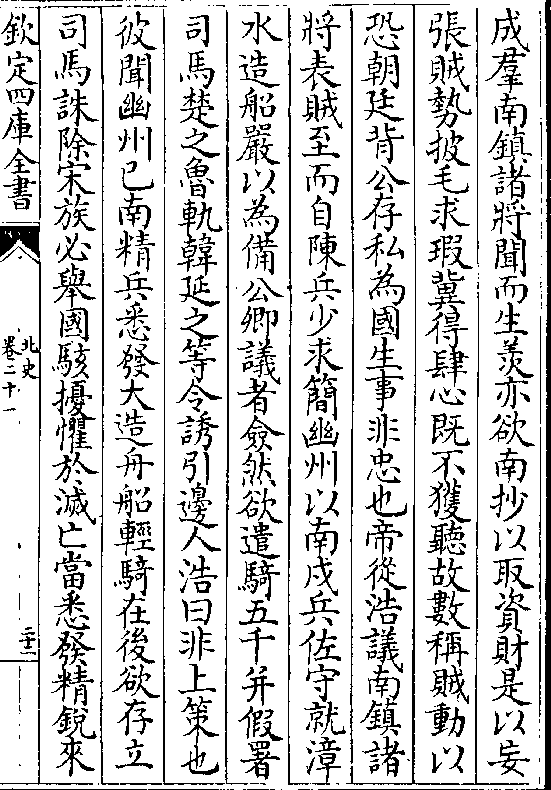 成羣南鎮諸將聞而生羨亦欲南抄以取資財是以妄
張賊勢披毛求瑕冀得肆心既不獲聽故數稱賊動以
恐朝廷背公存私為國生事非忠也帝從浩議南鎮諸
將表賊至而自陳兵少求簡幽州以南戍兵佐守就漳
水造船嚴以為備公卿議者僉然欲遣騎五千并假署
司馬楚之魯軌韓延之等令誘引邊人浩曰非上策也
彼聞幽州已南精兵悉發大造舟船輕騎在後欲存立
司馬誅除宋族必舉國駭擾懼於滅亡當悉發精銳來
欽定四庫全書
北史
卷二十一
二十二